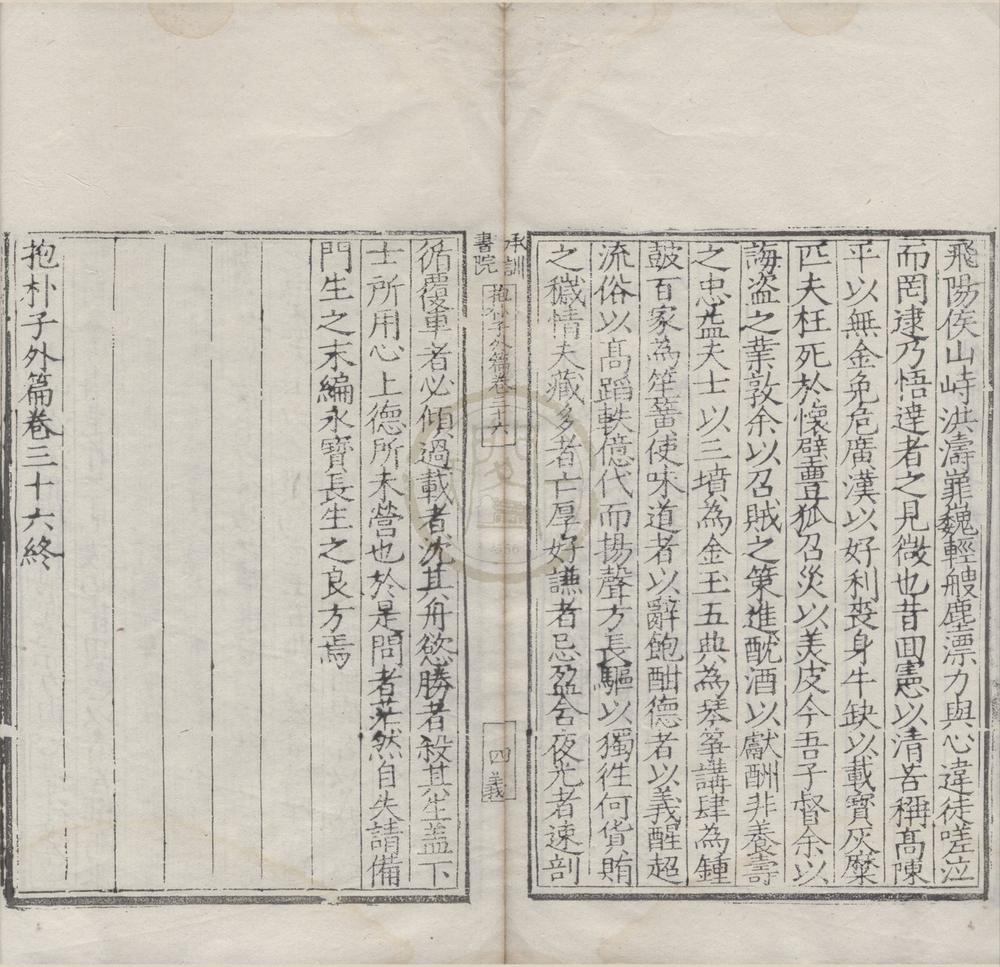 飛陽侯山峙洪濤巃巍輕艘塵漂力與心違徒嗟泣
而罔逮乃悟達者之見微也昔囬憲以清苦稱髙陳
平以無金免危廣漢以好利喪身牛缺以載寳灰糜
匹夫枉死於懷璧豐狐召災以美皮今吾子督余以
誨盗之業敦余以召賊之策進酖酒以獻酬非養壽
之忠益夫士以三墳為金玉五典為琴筝講肆為鍾
皷百家為笙簧使味道者以辭飽酣德者以義醒超
流俗以髙蹈軼億代而揚聲方長驅以獨徃何貨賄
之穢情夫藏多者亡厚好謙者忌盈含夜光者速剖
循覆車者必傾過載者沈其舟慾勝者殺其生盖下
士所用心上德所未營也於是問者茫然自失請備
門生之末編永寳長生之良方焉
抱朴子外篇卷三十六終
承訓
書院
抱朴子外篇卷三十六
四